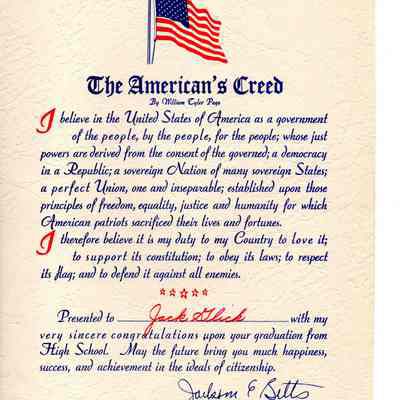 The American's Creed
By William Tyler Page
I believe in the United States of America as a government
of the people, by the people, for the people; whose just
powers are derived from the consent of the governed; a democracy
in a Republic; a sovereign Nation of many sovereign States;
a perfect Union, one and inseparable; established upon those
principles of freedom, equality, justice and humanity for which
American patriots sacrificed their lives and fortunes.
I therefore believe it is my duty to my Country to love it;
to support its constitution; to obey its laws; to respect
its flag; and to defend it against all enemies.
Presented to Jack Glick with my
very sincere congratulations upon your graduation from
High School. May the future bring you much happiness,
success, and achievement in the ideals of citizenship.
Jackson E Betts